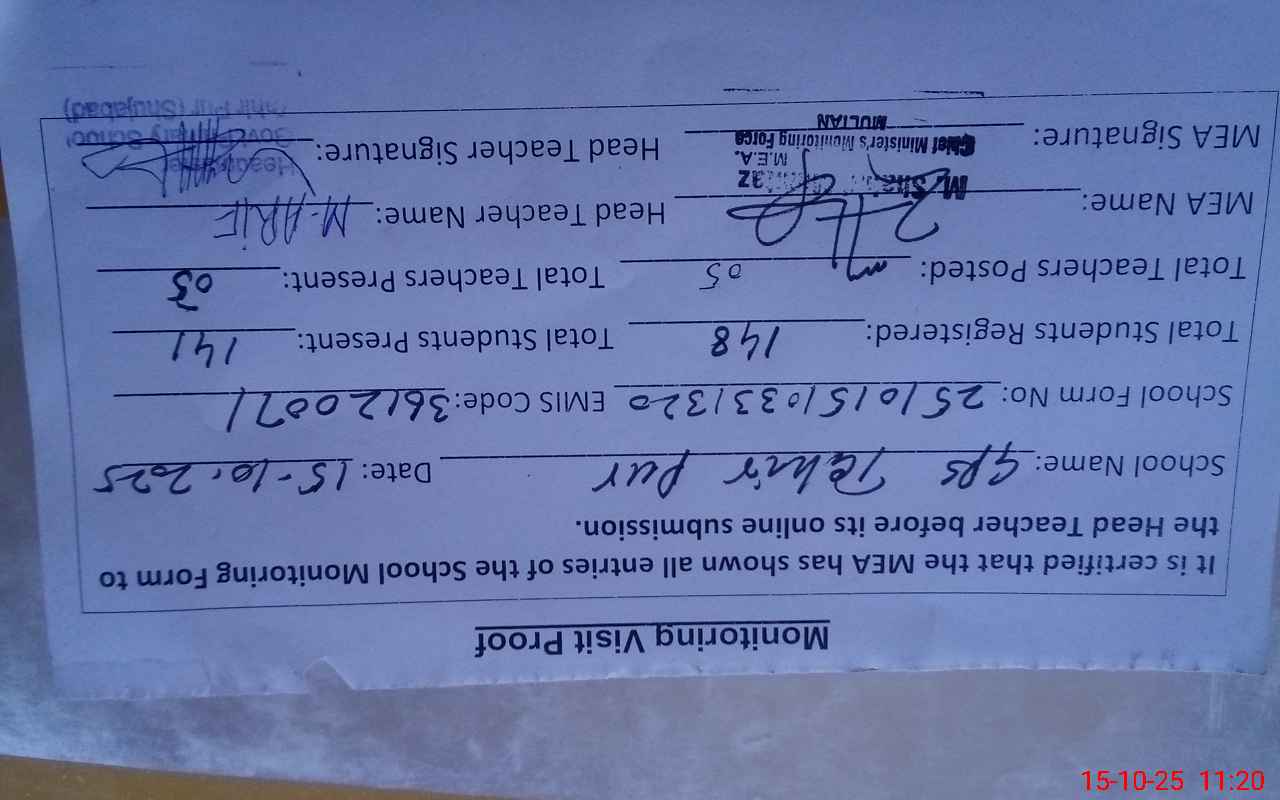 Monitoring Visit Proof
It is certified that the MEA has shown all entries of the School Monitoring Form to
the Head Teacher before its online submission.
School Name: GPS Tahir Pur Date: 15-10-2025
School Form No: 25101510331320 EMIS Code: 36120071
Total Students Registered: 148 Total Students Present: 141
Total Teachers Posted: 05 Total Teachers Present: 03
MEA Name: Head Teacher Name: M-ARIF
M.E.A.
MEA Signature: Chief Minister's Monitoring Force Head Teacher Signature:
MULTAN
15-10-25 11:20